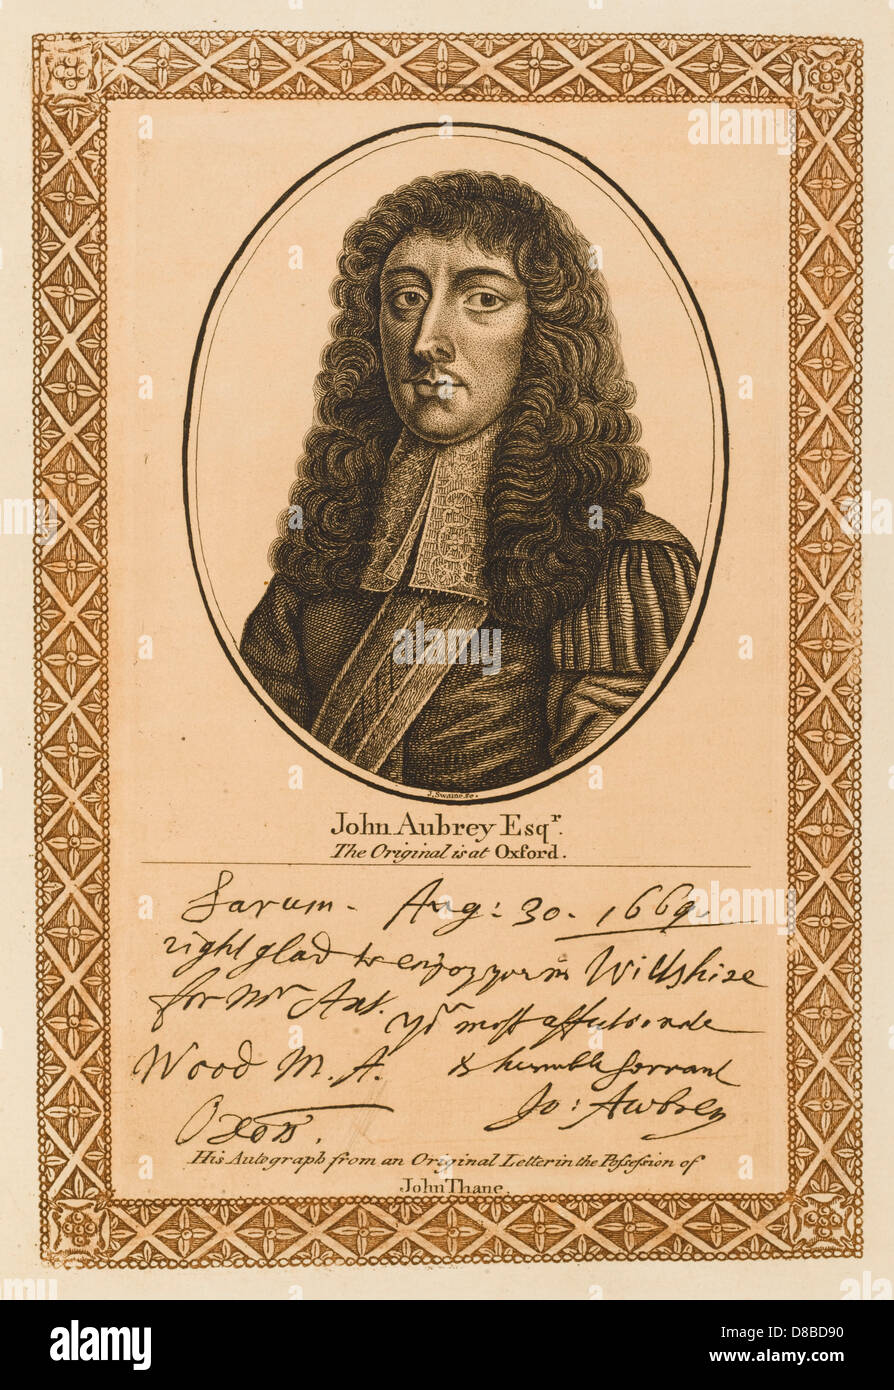 J. Swaine sc.
John Aubrey Esqr.
The Original is at Oxford.
Sarum. Aug: 30. 1669.
right glad to enjoy you in Wiltshire
for Mr Ant.
yor most affectionate
Wood M. A. & humble servant
Oxon. Jo: Awbrey
His Autograph from an Original Letter in the Possession of
John Thane.
alamy
Image ID: D8BD90
www.alamy.com